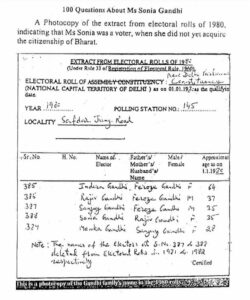 100 Questions About Ms Sonia Gandhi
A Photocopy of the extract from electoral rolls of 1980,
indicating that Ms Sonia was a voter, when she did not yet acquire
the citizenship of Bharat.
EXTRACT FROM ELECTORAL ROLLS OF
(Under Rule 33 of Registration of Elector Rule, 1960)
New Delhi
ELECTORAL ROLL OF ASSEMBLY CONSTITUENCY:
(NATIONAL CAPITAL TERRITORY OF DELHI ) as on 01.01. the qualifying
date.
YEAR 1980 POLLING STATION NO : 145
LOCALITY Safdar Jung Road
Sr.No H. No. Name of Elector Father's/ Mother's/ Husband's/ Name Male/ Female Approximate age as on 1.1.
385 Indira Gandhi Feroze Gandhi F 64
Rajiv Gandhi Feroze Gandhi M 37
387 Sanjay Gandhi Feroze Gandhi M 35
388 Sonia Gandhi Rajiv Gandhi F 35
Gandhi Sanjay Gandhi F
Note : The names of the electors at S.No. 387 &
deleted from Electoral Rolls in 1981 &
respectively
Certified
This is a photocopy of the Gandhi family's name in the 1980 rolls